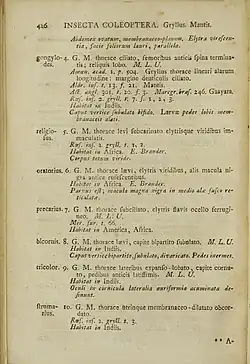 426 INSECTA COLEOPTERA. Gryllus. Mantis.
Abdomen ovatum, membranaceo-planum. Elytra viresfen-
tia, facie foliorum lauri, parallela.
gongylo- 4. G. M. thorace ciliato, femoribus anticis spina termina-
des. tis; reliquis lobo. M. L. U.
Amœn. acad. 1. p. 504. Gryllus thorace lineari alarum
longitudine: margine denticulis ciliato.
Aldr. inf. t. 13. f. 21. Mantis.
Act. angl. 301. t. 20. f. 3. Marcgr. bras. 246. Gaayara.
Rœs. inf. 2. gryll. t. 7. f. 1, 2, 3.
Habitat in Indiis.
Caput vertice subulato bifido. Larvæ pedes lobis mem-
branaceis alati.
religio- 5. G. M. thorace lævi subcarinato elytrisque viridibus im-
sus. maculatis.
Rœs. inf. 2. gryll. t. 1, 2.
Habitat in Africa. E. Brander.
Corpus totum viride.
oratorius. 6. G. M. thorace lævi, elytris viridibus, alis macula ni-
gra antice rufescentibus.
Habitat in Africa. E. Brander.
Parvus est, macula magna nigra in medio alæ fusco re-
ticulatæ.
precarius. 7. G. M. thorace subciliato, elytris flavis ocello ferrugi-
neo. M. L. U.
Mer. sur. t. 66.
Habitat in America, Africa.
bicornis. 8. G. M. thorace lævi, capite bipartito subulato. M. L. U.
Habitat in Indiis.
Caput vertice bipartito, subulato, divaricato. Pedes inermes.
tricolor. 9. G. M. thorace lateribus expanso-lobato, capite cornu-
to, pedibus anticis latissimis. M. L. U.
Habitat in Indiis.
Oculi in cornicula lateralia auriformia acuminata de-
sinunt.
struma- 10. G. M. thorace utrinque membranaceo-dilatato obcor-
rius. dato.
Rœs. inf. 2. gryll. t. 3.
Habitat in Indiis.
** A-